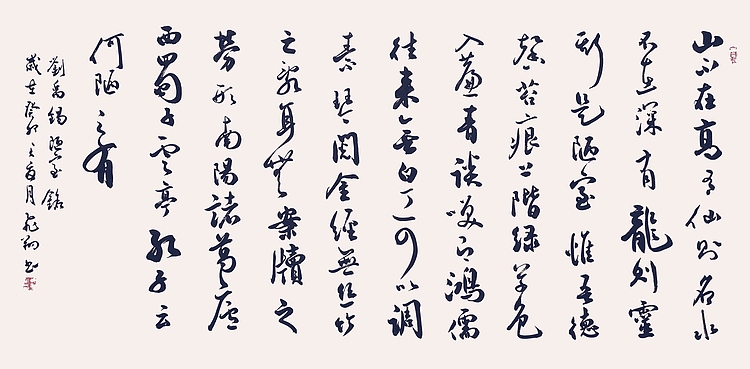 山不在高有仙則名水
不在深有龍則靈
斯是陋室惟吾德
馨苔痕上階緑草色
入簾青談笑有鴻儒
往來無白丁可以調
素琴閱金經無絲竹
之亂耳無案牘之
勞形南陽諸葛廬
西蜀子雲亭孔子云
何陋之有
劉禹錫陋室銘
歲在癸卯之月書